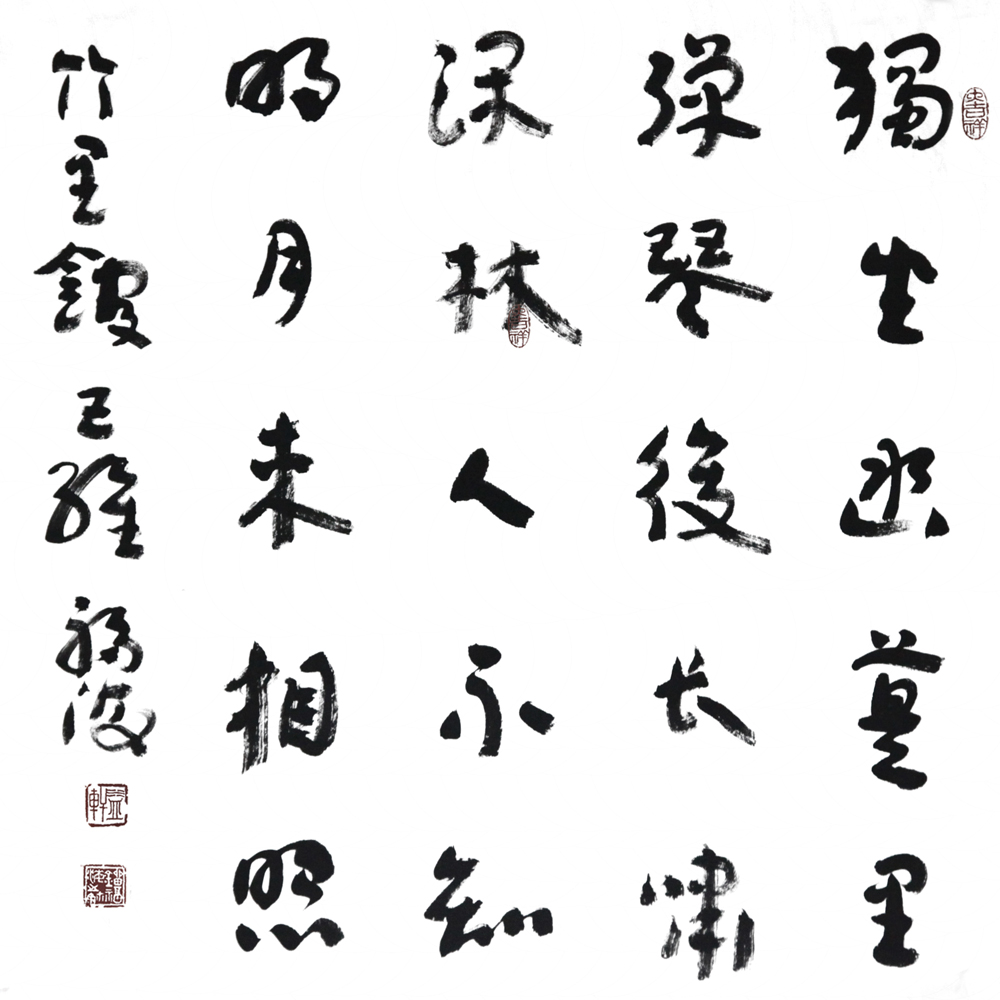 獨坐幽篁里
彈琴復长嘯
深林人不知
明月来相照
竹里館王維